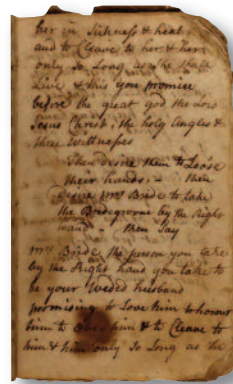 her in Sickness & heal
and to Cleave to her & her
only So Long as she shall
Live & this you promise
before the great god the Lord
Jesus Christ, the holy Angles &
these Wittnesses
Then desire them to Loose
their hands. – then
Desire Mrs Bride to take
the Bridegroome by the Right
hand – then Say
Mrs Bride the person you take
by the Right hand you take to
be your Weded husband
promising to Love him to honour
him to Obey him & to Cleave to
him & him only So Long as the